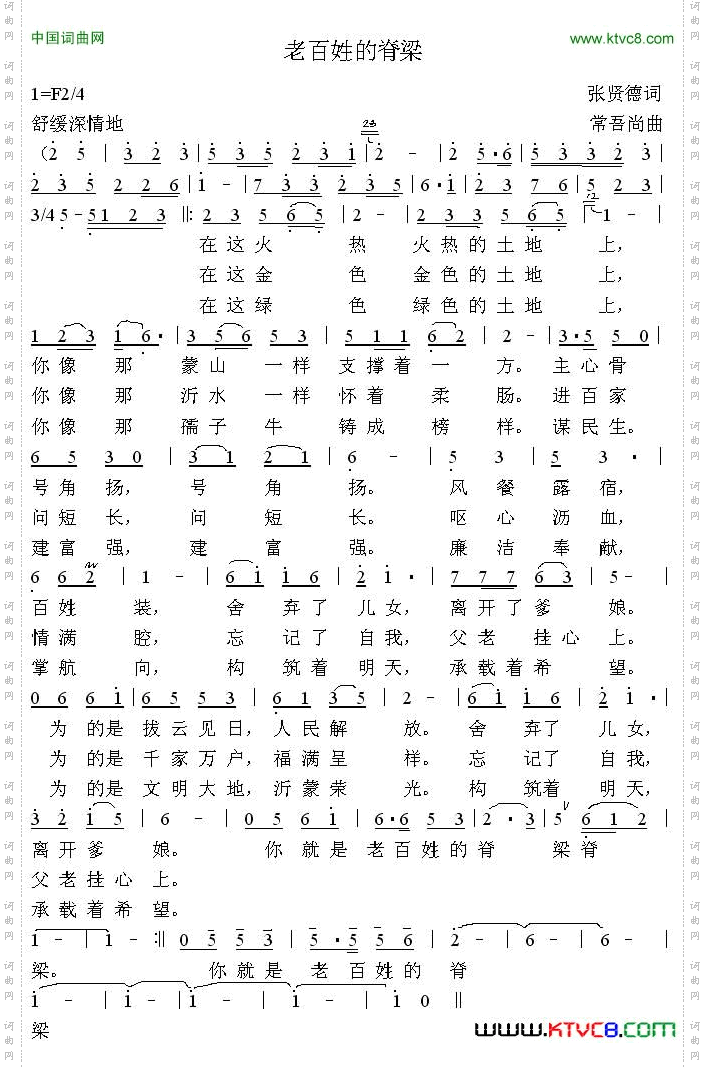 中国词曲网
老百姓的脊梁
www.ktvc8.com
1=F2/4
张贤德词
舒缓深情地
常吾尚曲
(2 5 | 3 2 3 | 5 3 5 2 3 1 | 2 - | 2 5·6 | 5 3 3 2 3 |
2 3 5 2 2 6 | 1 - | 7 3 3 2 3 5 | 6·1 | 2 7 2 7 6 | 5 2 3 |
3/4 5 - 5 1 2 3 ‖: 2 3 5 6 5 | 2 - | 2 3 3 5 6 5 | 1 - |
在这火 热 火热的土地 上，
在这金 色 金色的土地 上，
在这绿 色 绿色的土地 上，
1 2 3 1 6· | 3 5 6 5 3 | 5 1 1 6 2 | 2 - | 3·5 5 0 |
你像 那 蒙山 一样 支撑着 一 方。主心骨
你像 那 沂水 一样 怀着 柔 肠。进百家
你像 那 孺子 牛 铸成 榜 样。谋民生。
6 5 3 0 | 3 1 2 1 | 6 - | 5 3 | 5 3· |
号角扬， 号 角 扬。 风 餐 露 宿，
问短长， 问 短 长。 呕 心 沥 血，
建富强， 建 富 强。 廉 洁 奉 献，
6 6 2 | 1 - | 6 1 1 6 | 2 1· | 7 7 7 6 3 | 5 - |
百姓 装， 舍 弃了 儿女，离开了爹 娘。
情满 腔， 忘 记了 自我，父老 挂心 上。
掌航 向， 构 筑着 明天，承载着希 望。
0 6 6 1 | 6 5 5 3 | 6 1 3 5 | 2 - | 6 1 1 6 | 2 1· |
为 的是 拔云见日，人民解 放。 舍 弃了 儿女，
为 的是 千家万户，福满呈 样。 忘 记了 自我，
为 的是 文明大地，沂蒙荣 光。 构 筑着 明天，
3 2 1 5 | 6 - | 0 5 6 1 | 6·6 5 3 | 2·3 | 5 6 1 2 |
离开爹 娘。 你 就是 老百姓的脊 梁脊
父老挂心 上。
承载着希 望。
1 - | 1 - :‖ 0 5 5 3 | 5·5 5 6 | 2 - | 6 - | 6 - |
梁。 你就是 老 百姓的 脊
1 - | 1 - | 1 - | 1 - | 1 0 ‖
梁
www.KTVC8.com